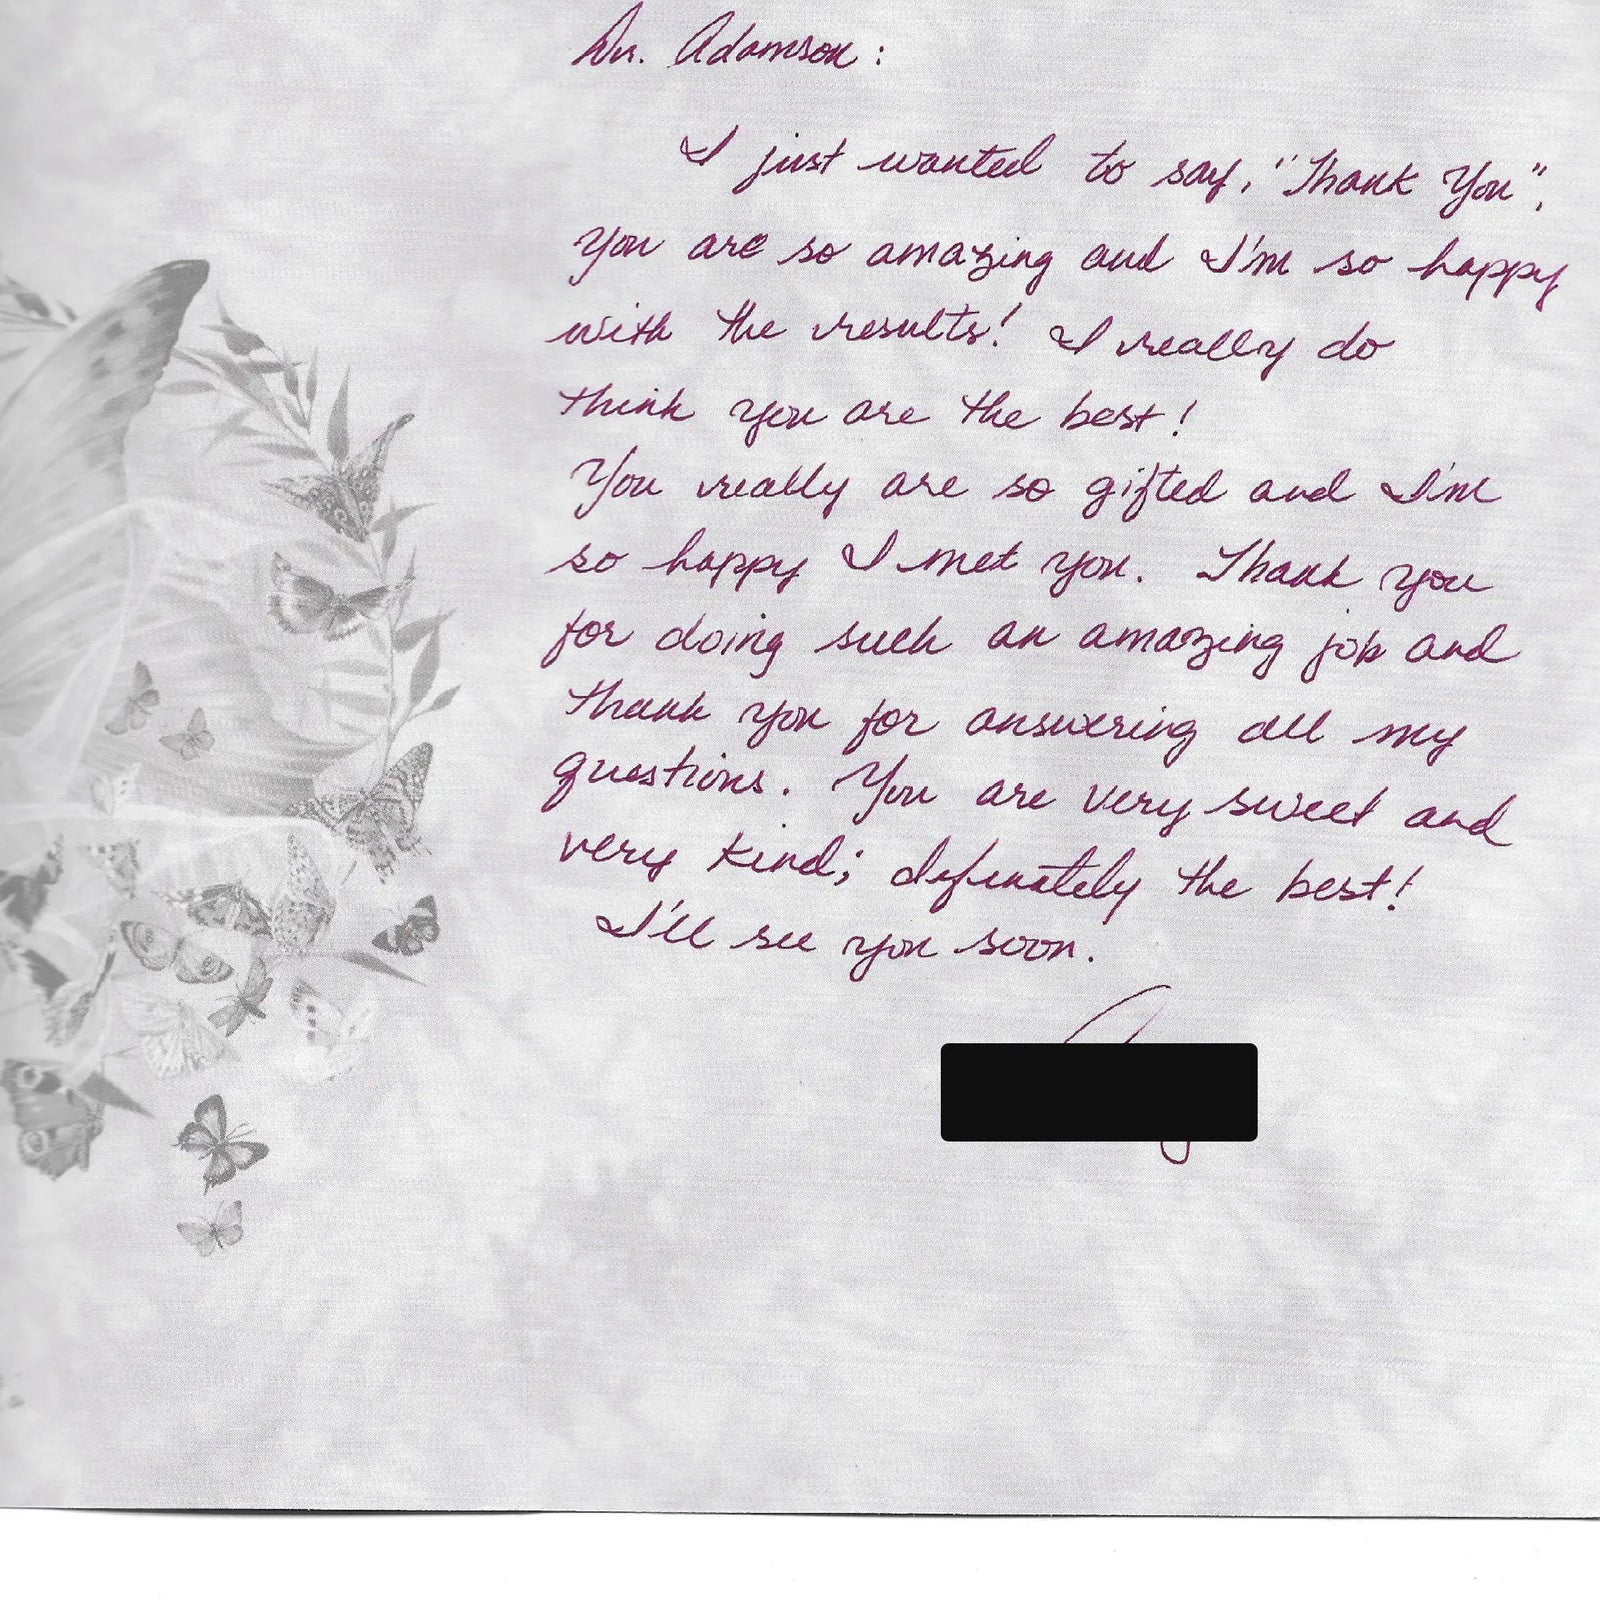 Dr. Adamson:
I just wanted to say, "Thank You",
You are so amazing and I'm so happy
with the results! I really do
think you are the best!
You really are so gifted and I'm
so happy I met you. Thank you
for doing such an amazing job and
thank you for answering all my
questions. You are very sweet and
very kind; definately the best!
I'll see you soon.